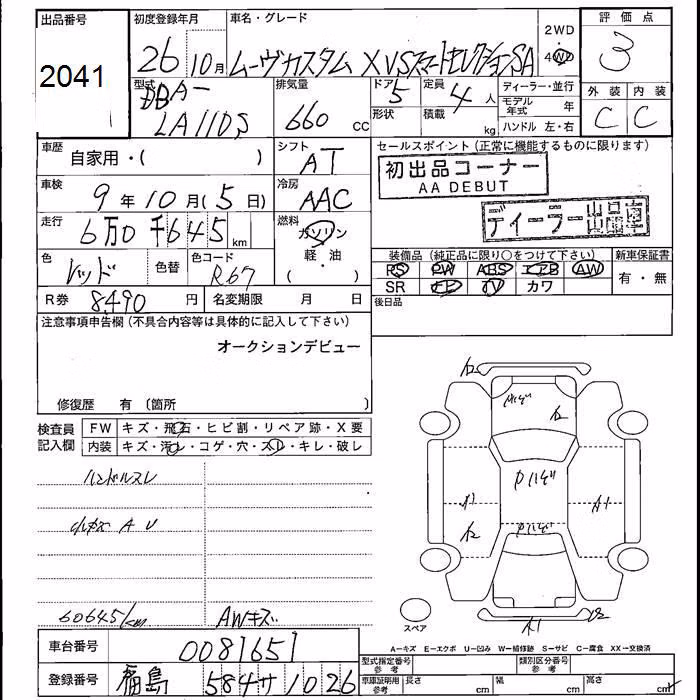 出品番号
2041
初度登録年月
26 10月
車名・グレード
ムーヴカスタム XVSスマートセレクションSA
2WD
4WD
評価点
3
外装 内装
C C
型式
DBA-
LA110S
排気量
660 cc
ドア 5
形状
定員 4 人
積載 kg
ディーラー・並行
モデル年式 年
ハンドル 左・右
車歴
自家用・( )
シフト
AT
セールスポイント(正常に機能するものに限ります)
初出品コーナー
AA DEBUT
ディーラー出品車
車検
9年10月(5日)
冷房
AAC
走行
6万0千645km
燃料
ガソリン
・
軽・油
( )
色
レッド
色替
色コード
R67
装備品(純正品に限り○をつけて下さい)
新車保証書
PS PW ABS エアB AW
有・無
SR ナビ TV カワ
R券 8,490 円
名変期限 月 日
後日品
注意事項申告欄(不具合内容等は具体的に記入して下さい)
オークションデビュー
修復歴 有 (箇所 )
検査員
記入欄
FW キズ・飛石・ヒビ割・リペア跡・X要
内装 キズ・汚レ・コゲ・穴・スレ・キレ・破レ
ハンドルスレ
A U
60645km
AWキズ
P A1 A1
スペア
A1
A-キズ E-エクボ U-凹み W-補修跡 S-サビ C-腐食 XX-交換済
車台番号
0081651
登録番号
福島 584 サ 1026
型式指定番号 参考
類別区分番号 参考
車庫証明用 参考
長さ cm
幅 cm
高さ cm